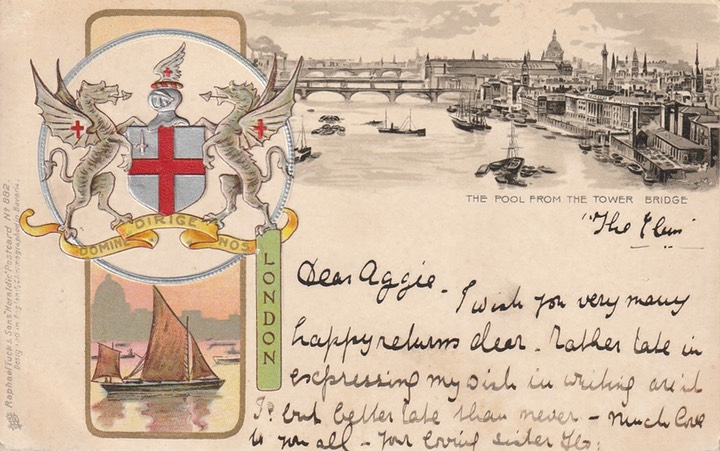 Raphael Tuck & Sons' "Heraldic" Postcard No 882.
DOMINE DIRIGE NOS
LONDON
THE POOL FROM THE TOWER BRIDGE
"The
Dear Aggie.
I wish you very many
happy returns dear - Rather late in
expressing my wish in writing
I? but better late than never - Much love
to you all - your loving sister Flo: